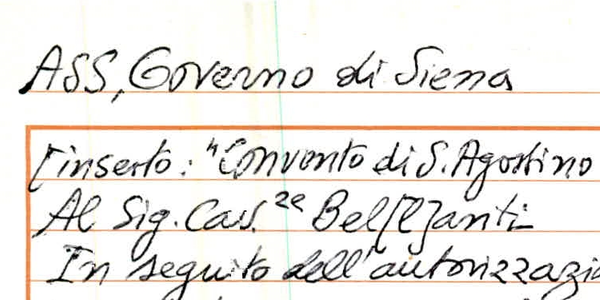 ASS, Governo di Siena
[inserto: "Convento di S. Agostino
Al Sig. Cav.re Bel[l]anti
In seguito dell'autorizzazio